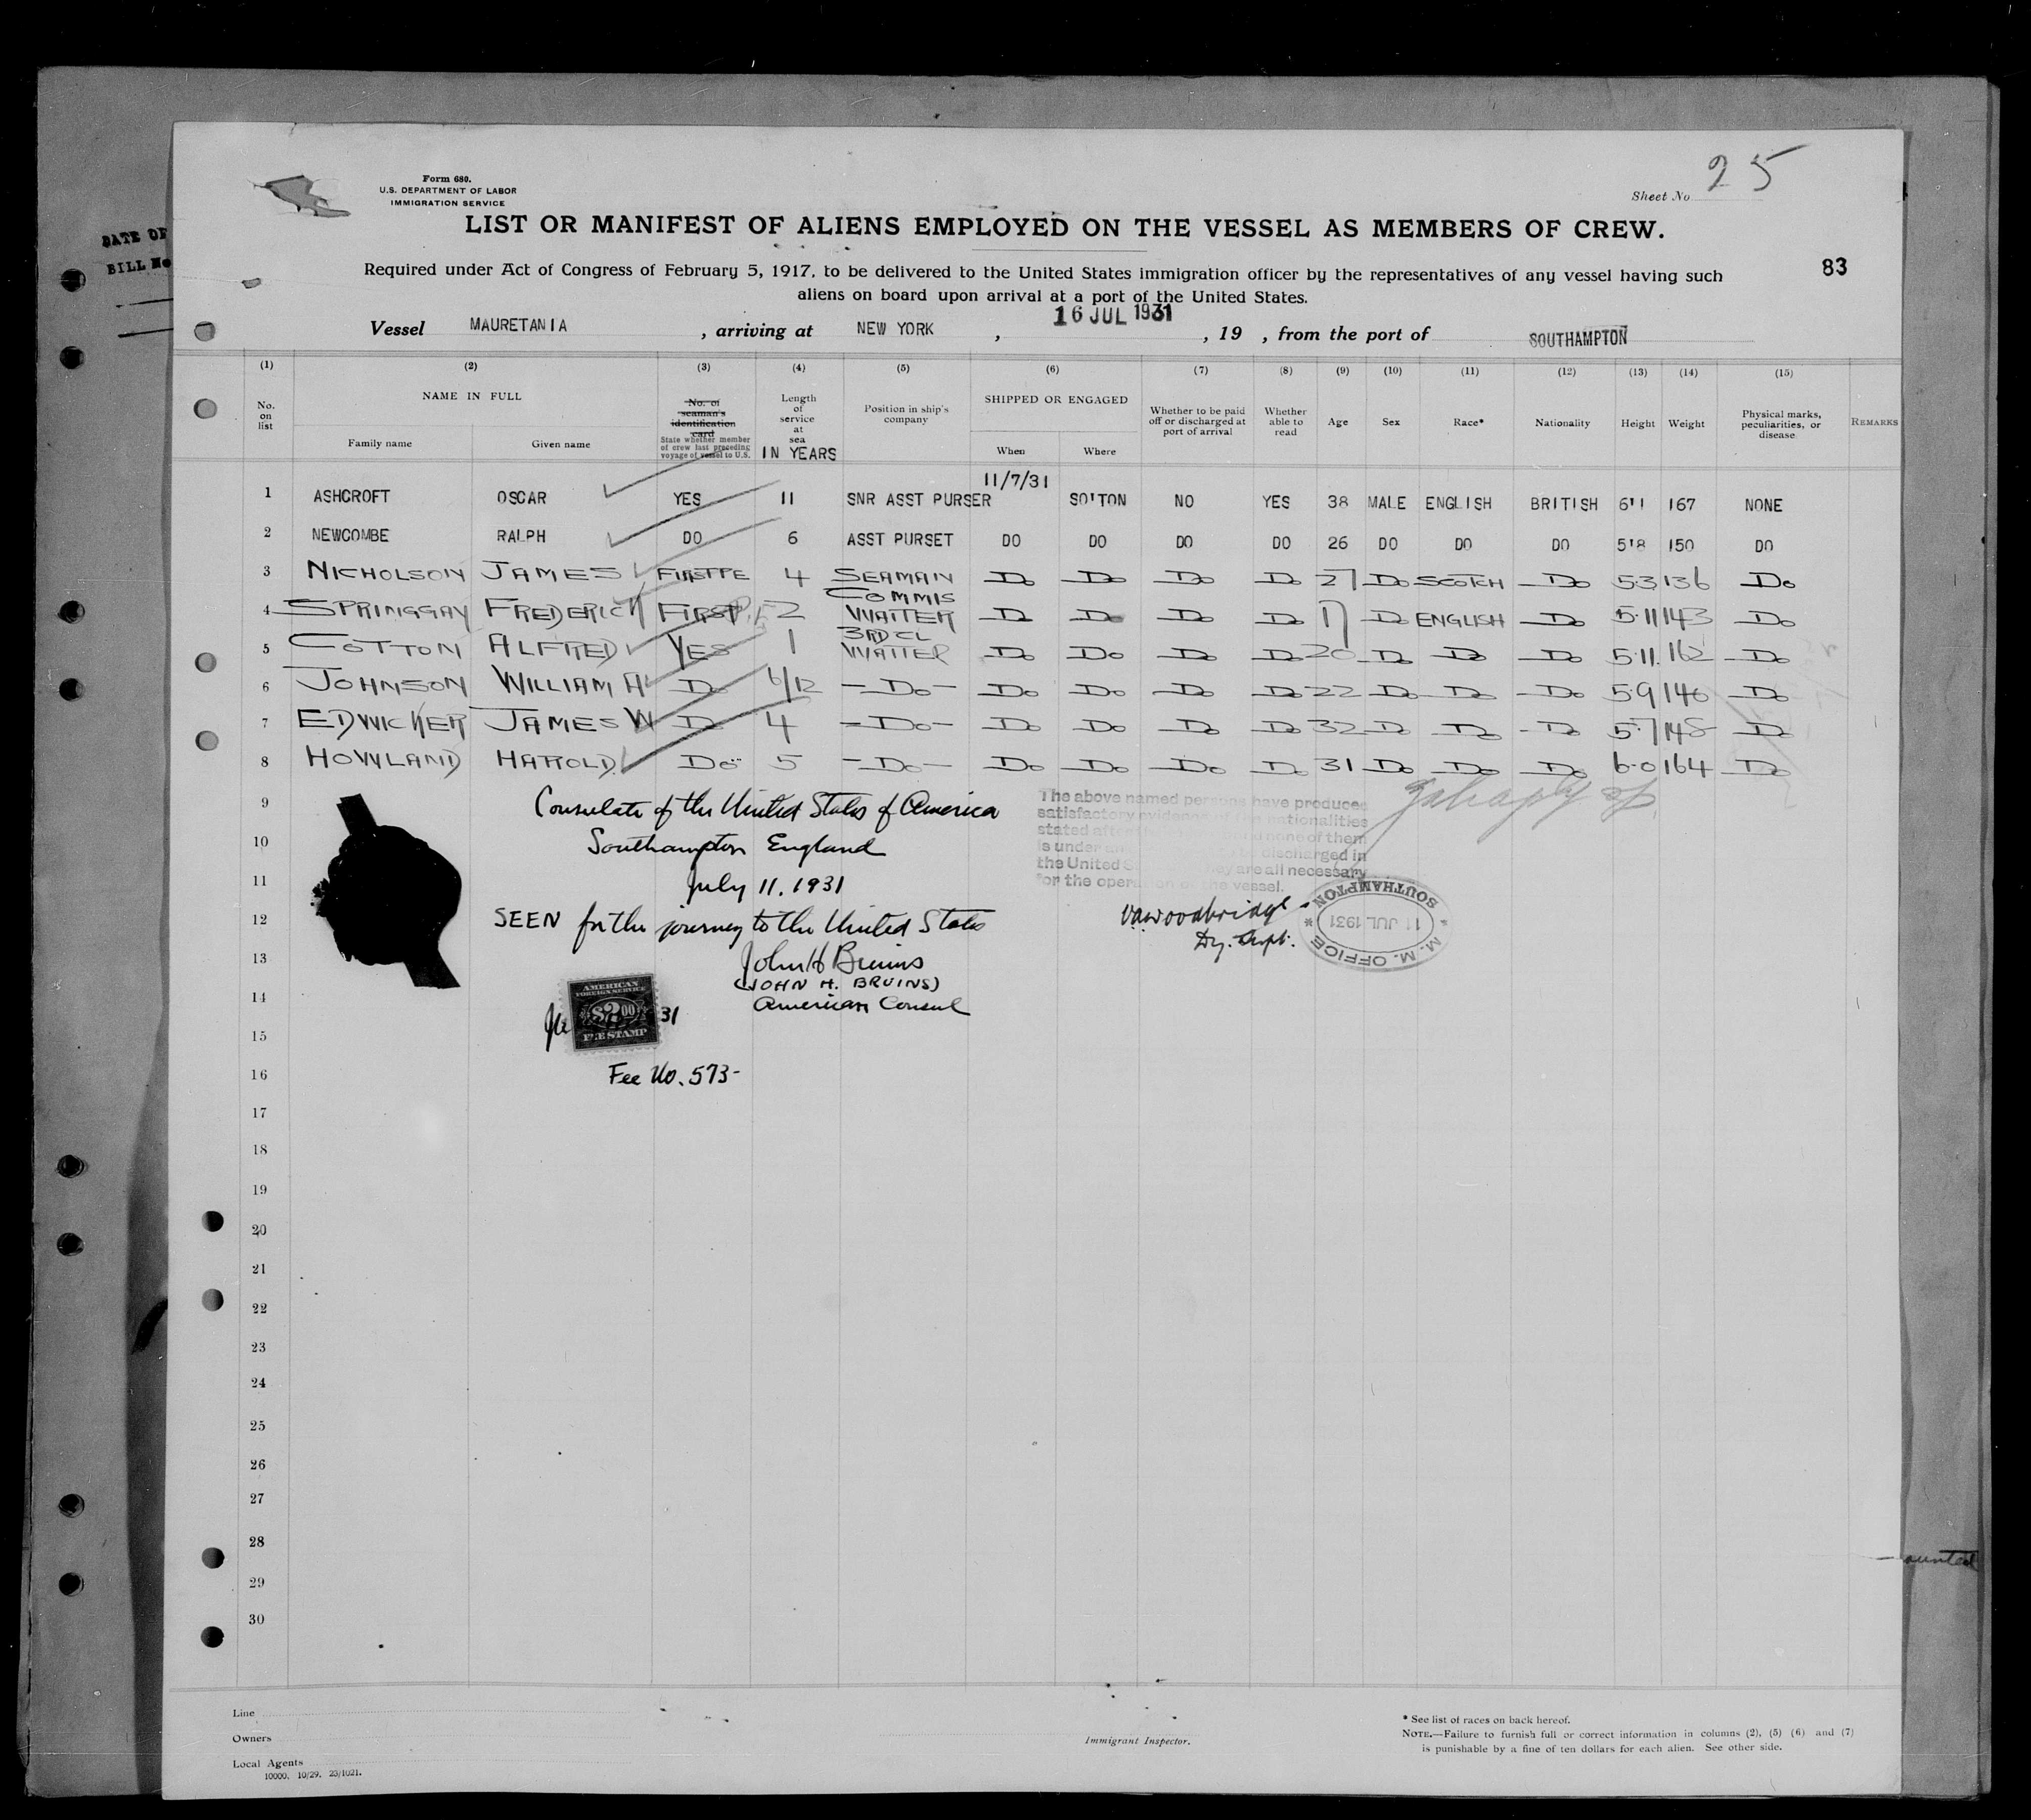 DATE OF
BILL No
Form 680.
U.S. DEPARTMENT OF LABOR
IMMIGRATION SERVICE
Sheet No. 25
LIST OR MANIFEST OF ALIENS EMPLOYED ON THE VESSEL AS MEMBERS OF CREW.
83
Required under Act of Congress of February 5, 1917, to be delivered to the United States immigration officer by the representatives of any vessel having such
aliens on board upon arrival at a port of the United States.
Vessel MAURETANIA , arriving at NEW YORK , 16 JUL 1931 , 19 , from the port of SOUTHAMPTON
(1) (2) (3) (4) (5) (6) (7) (8) (9) (10) (11) (12) (13) (14) (15)
No. on list
NAME IN FULL
Family name Given name
No. of seaman's identification card
State whether member of crew last preceding voyage of vessel to U.S.
Length of service at sea
IN YEARS
Position in ship's company
SHIPPED OR ENGAGED
When Where
Whether to be paid off or discharged at port of arrival
Whether able to read
Age Sex Race* Nationality Height Weight
Physical marks, peculiarities, or disease
REMARKS
11/7/31
1 ASHCROFT OSCAR YES 11 SNR ASST PURSER SO'TON NO YES 38 MALE ENGLISH BRITISH 6'1 167 NONE
2 NEWCOMBE RALPH DO 6 ASST PURSET DO DO DO DO 26 DO DO DO 5'8 150 DO
3 NICHOLSON JAMES 4 SEAMAN Do Do Do Do 27 Do SCOTCH Do 5·3 136 Do
4 SPRINGGAY FREDERICK FIRST 2 COMMIS WAITER Do Do Do Do 17 Do ENGLISH Do 5·11 143 Do
5 COTTON ALFRED YES 1 3RD CL WAITER Do Do Do Do 20 Do Do Do 5·11 162 Do
6 JOHNSON WILLIAM A Do 6/12 -Do- Do Do Do Do 22 Do Do Do 5·9 140 Do
7 EDWICKER JAMES W Do 4 -Do- Do Do Do Do 32 Do Do Do 5·7 148 Do
8 HOWLAND HAROLD Do 5 -Do- Do Do Do Do 31 Do Do Do 6·0 164 Do
9
10
11
12
13
14
15
16
17
18
19
20
21
22
23
24
25
26
27
28
29
30
Consulate of the United States of America
Southampton England
July 11, 1931
SEEN for the journey to the United States
John H Bruins
(JOHN H. BRUINS)
American Consul
AMERICAN
FOREIGN SERVICE
$2.00
FEE STAMP
31
Fee No. 573-
The above named persons have produced
satisfactory evidence of the nationalities
stated after and none of them
is under be discharged in
the United S they are all necessary
for the operation of the vessel.
Woodbridge
Dy. Supt.
M. M. OFFICE
11 JUL 1931
SOUTHAMPTON
Line
Owners
Local Agents
10000. 10/29. 23/1021.
Immigrant Inspector.
* See list of races on back hereof.
NOTE.—Failure to furnish full or correct information in columns (2), (5) (6) and (7)
is punishable by a fine of ten dollars for each alien. See other side.